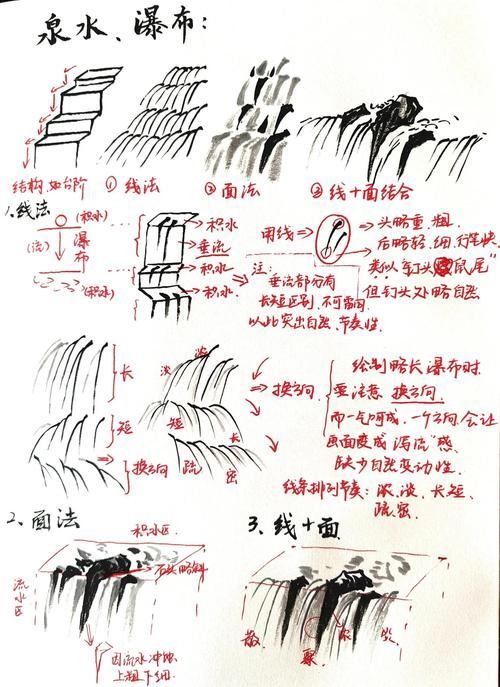 泉水、瀑布:
结构如台阶
①线法
②面法
③线+面结合
1.线法
(积水)
(流)
瀑布
(积水)
积水
垂流
积水
积水
用线
头略重.粗.
后略轻.细.行笔快
类似"钉头鼠尾"
但钉头处略自然
注:
垂流部分有
长短区别.不可雷同
以此突出自然.节奏性.
长
短
换方向
淡
浓
短
长
疏
密
换方向
绘制略长瀑布时.
垂法意 换方向.
而一气呵成.一个方向会让
画面变成"泻流"感.
缺少自然变动性.
线条排列节奏:浓.淡.长短.
疏.密.
2.面法
积水区.
石头略斜
流水区
因流水冲蚀
上粗下细.
3.线+面
散
聚